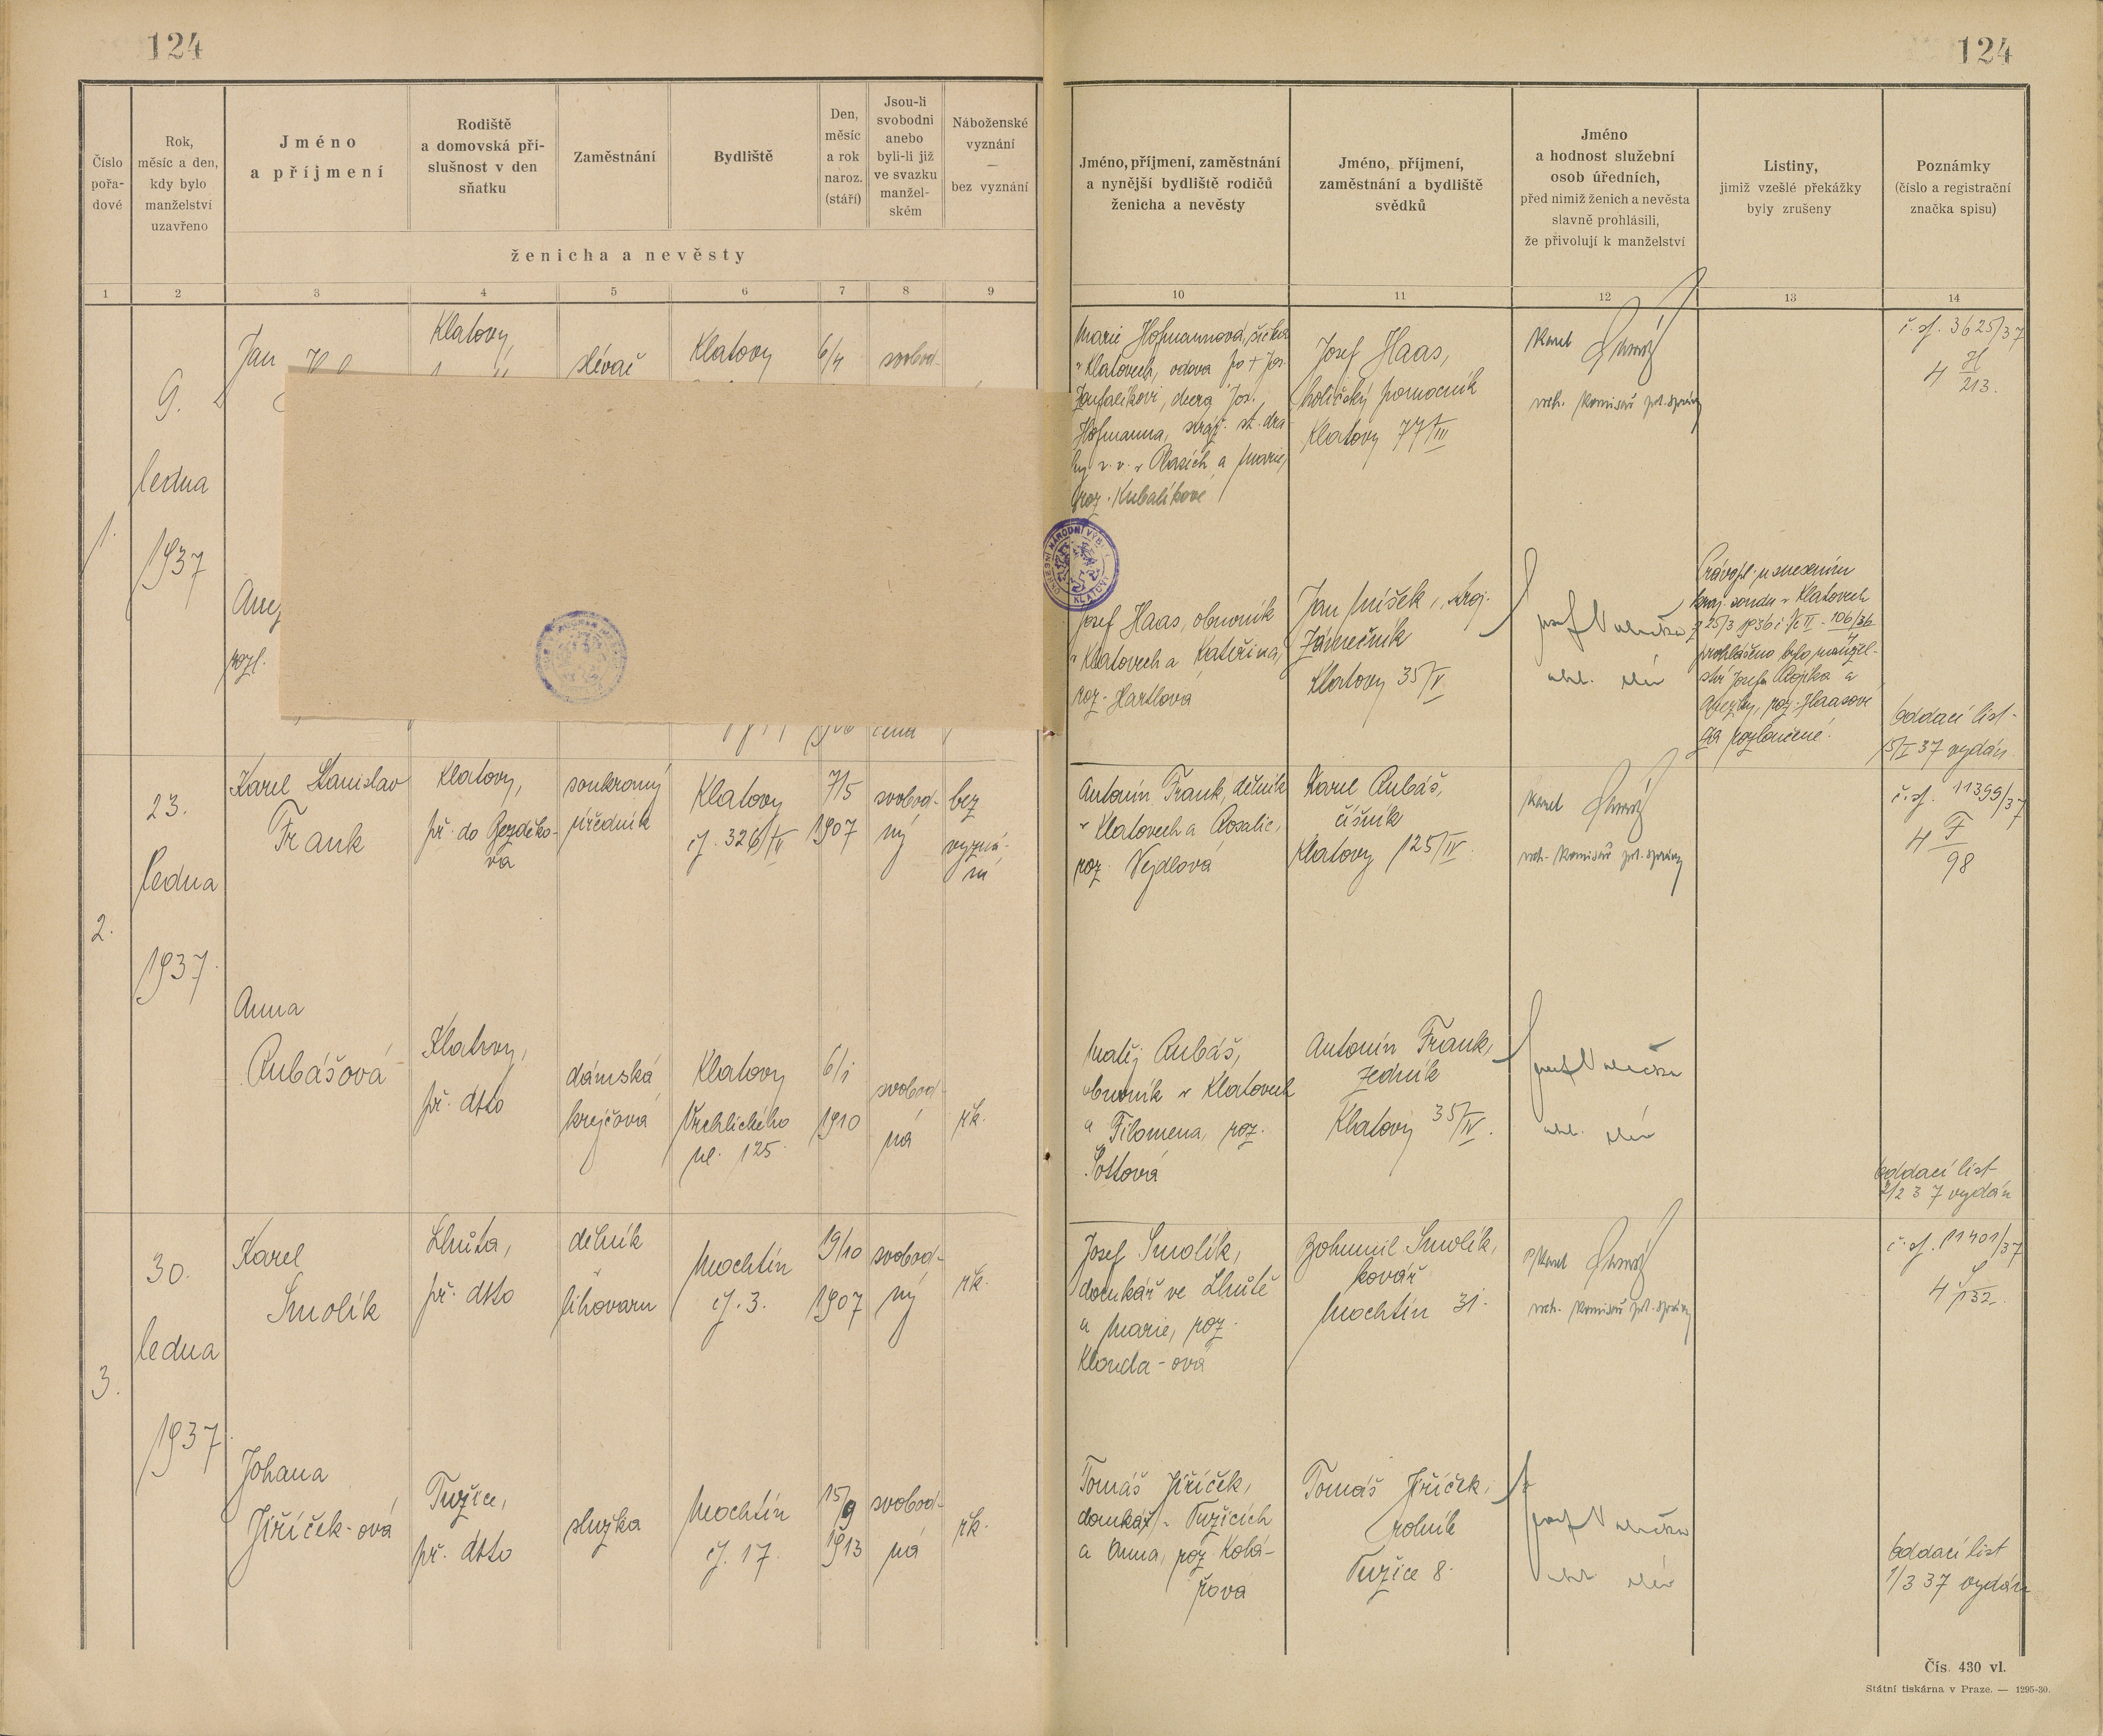 124
124
Číslo
pořa-
dové
Rok,
měsíc a den,
kdy bylo
manželství
uzavřeno
Jméno
a příjmení
Rodiště
a domovská pří-
slušnost v den
sňatku
Zaměstnání
Bydliště
Den,
měsíc
a rok
naroz.
(stáří)
Jsou-li
svobodni
anebo
byli-li již
ve svazku
manžel-
ském
Náboženské
vyznání
—
bez vyznání
ženicha a nevěsty
Jméno, příjmení, zaměstnání
a nynější bydliště rodičů
ženicha a nevěsty
Jméno, příjmení,
zaměstnání a bydliště
svědků
Jméno
a hodnost služební
osob úředních,
před nimiž ženich a nevěsta
slavně prohlásili,
že přivolují k manželství
Listiny,
jimiž vzešlé překážky
byly zrušeny
Poznámky
(číslo a registrační
značka spisu)
1 2 3 4 5 6 7 8 9 10 11 12 13 14
1.
9.
ledna
1937
Jan
Klatovy,
slévač
Klatovy
6/4
svobod-
rozl.
Marie Hofmannová,
v Klatovech, vdova po + Jos.
dcera Jos.
Hofmanna,
a Marie,
roz. Kubalíkové
Josef Haas,
holičský pomocník
Klatovy 77/III
Karel
vrch. komisař pol. správy
č. j. 3625/37
4 H
213.
OKRESNÍ NÁRODNÍ VÝBOR
KLATOVY
Josef Haas, obuvník
v Klatovech a Kateřina,
roz. Hartlová
Jan Míšek, stroj.
zámečník
Klatovy 35/V
Právopl. usnesením
kraj. soudu v Klatovech
z 25/3 1936 č. Ck II - 106/36
4
prohlášeno bylo manžel-
ství Josefa Rojíka a
Anežky, roz. Haasové
za rozloučené.
Oddací list
15/I 37 vydán
2.
23.
ledna
1937.
Karel Stanislav
Frank
Klatovy,
př. do Bezděko-
va
soukromý
úředník
Klatovy
čj. 326/IV
7/5
1907
svobod-
ný
bez
vyzná-
ní
Antonín Frank, dělník
v Klatovech a Rosalie,
roz. Vejdlová
Karel Rubáš,
číšník
Klatovy 125/IV.
Karel
vrch. komisař pol. správy
č. j. 11399/37
4 F
98
Anna
Rubášová
Klatovy,
př. dtto
dámská
krejčová
Klatovy
Vrchlického
ul. 125.
6/1
1910
svobod-
ná
řk.
Matěj Rubáš,
obuvník v Klatovech
a Filomena, roz.
Šottová
Antonín Frank,
zedník
Klatovy 35/IV.
Oddací list
2/2 37 vydán
3.
30.
ledna
1937.
Karel
Smolík
Lhůta,
př. dtto
dělník
v
lihovaru
Mochtín
čj. 3.
19/10
1907
svobod-
ný
řk.
Josef Smolík,
domkář ve Lhůtě
a Marie, roz.
Klouda-ová
Bohumil Smolík,
kovář
Mochtín 31.
Karel
vrch. komisař pol. správy
č. j. 11401/37
4 S
132.
Johana
Jiříček-ová
Tupice,
př. dtto
služka
Mochtín
čj. 17.
15/9
1913
svobod-
ná
řk.
Tomáš Jiříček,
domkář v Tužicích
a Anna, roz. Kolá-
řová
Tomáš Jiříček,
rolník
Tužice 8.
Oddací list
1/3 37 vydán
Čís. 430 vl.
Státní tiskárna v Praze. — 1295-30.